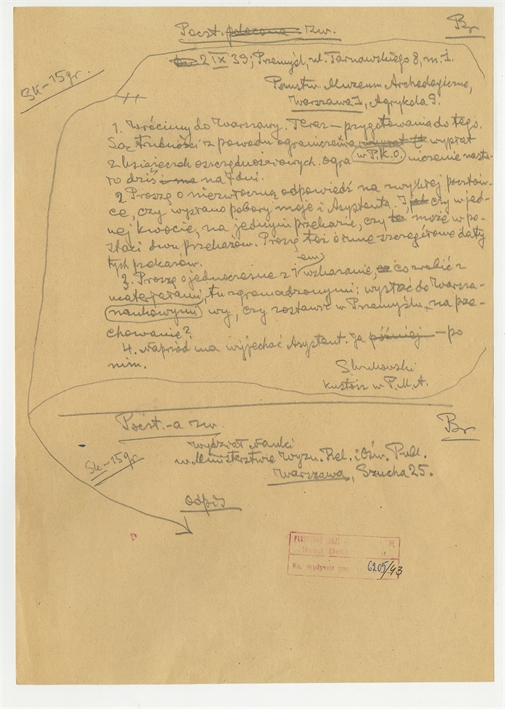 Poczt. polecona zw.
Br
Sk-15gr.
2 IX 39; Przemyśl, ul. Tarnawskiego 8, m. 1.
Państw. Muzeum Archeologiczne,
Warszawa 1, Agrykola 9.
1. Wrócimy do Warszawy. Teraz – przygotowania do tego.
Są trudności z powodu ograniczenia wypłat
z książeczek oszczędnościowych. w P.K.O.
dziś na 7 dni.
2. Proszę o niezwłoczną odpowiedź na zwykłej pocztów-
ce, czy wysłano pobory moje i Asystenta. I, czy w jed-
nej kwocie, na jednym przekazie, czy to może w po-
staci dwu przekazów. Proszę też o szczegółowe daty
tych przekazów.
3. Proszę o jednocześnie wskazanie, co zrobić z
materiałami, tu zgromadzonymi: wysłać do Warsza-
naukowymi wy, czy zostawić w Przemyślu, na prze-
chowanie?
4. Naprzód ma wyjechać Asystent. Ja później – po
nim.
kustosz w P.M.A.
Poczt.-a zw.
Br
Sk-15gr.
Wydział Nauki
w Ministerstwie Wyzn. Rel. i Ośw. Publ.
Warszawa, Szucha 25.
odpis
6205/43